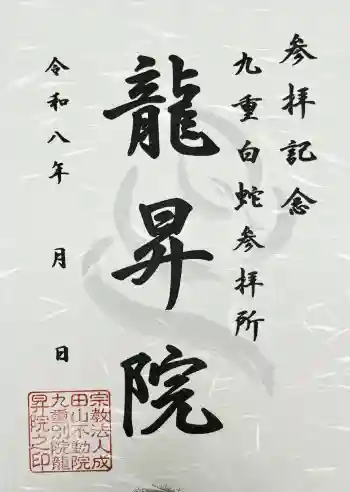 参拝記念
九重白蛇参拝所
龍昇院
令和八年 月 日
宗教法人成
田山不動院
九重別院龍
昇院之印